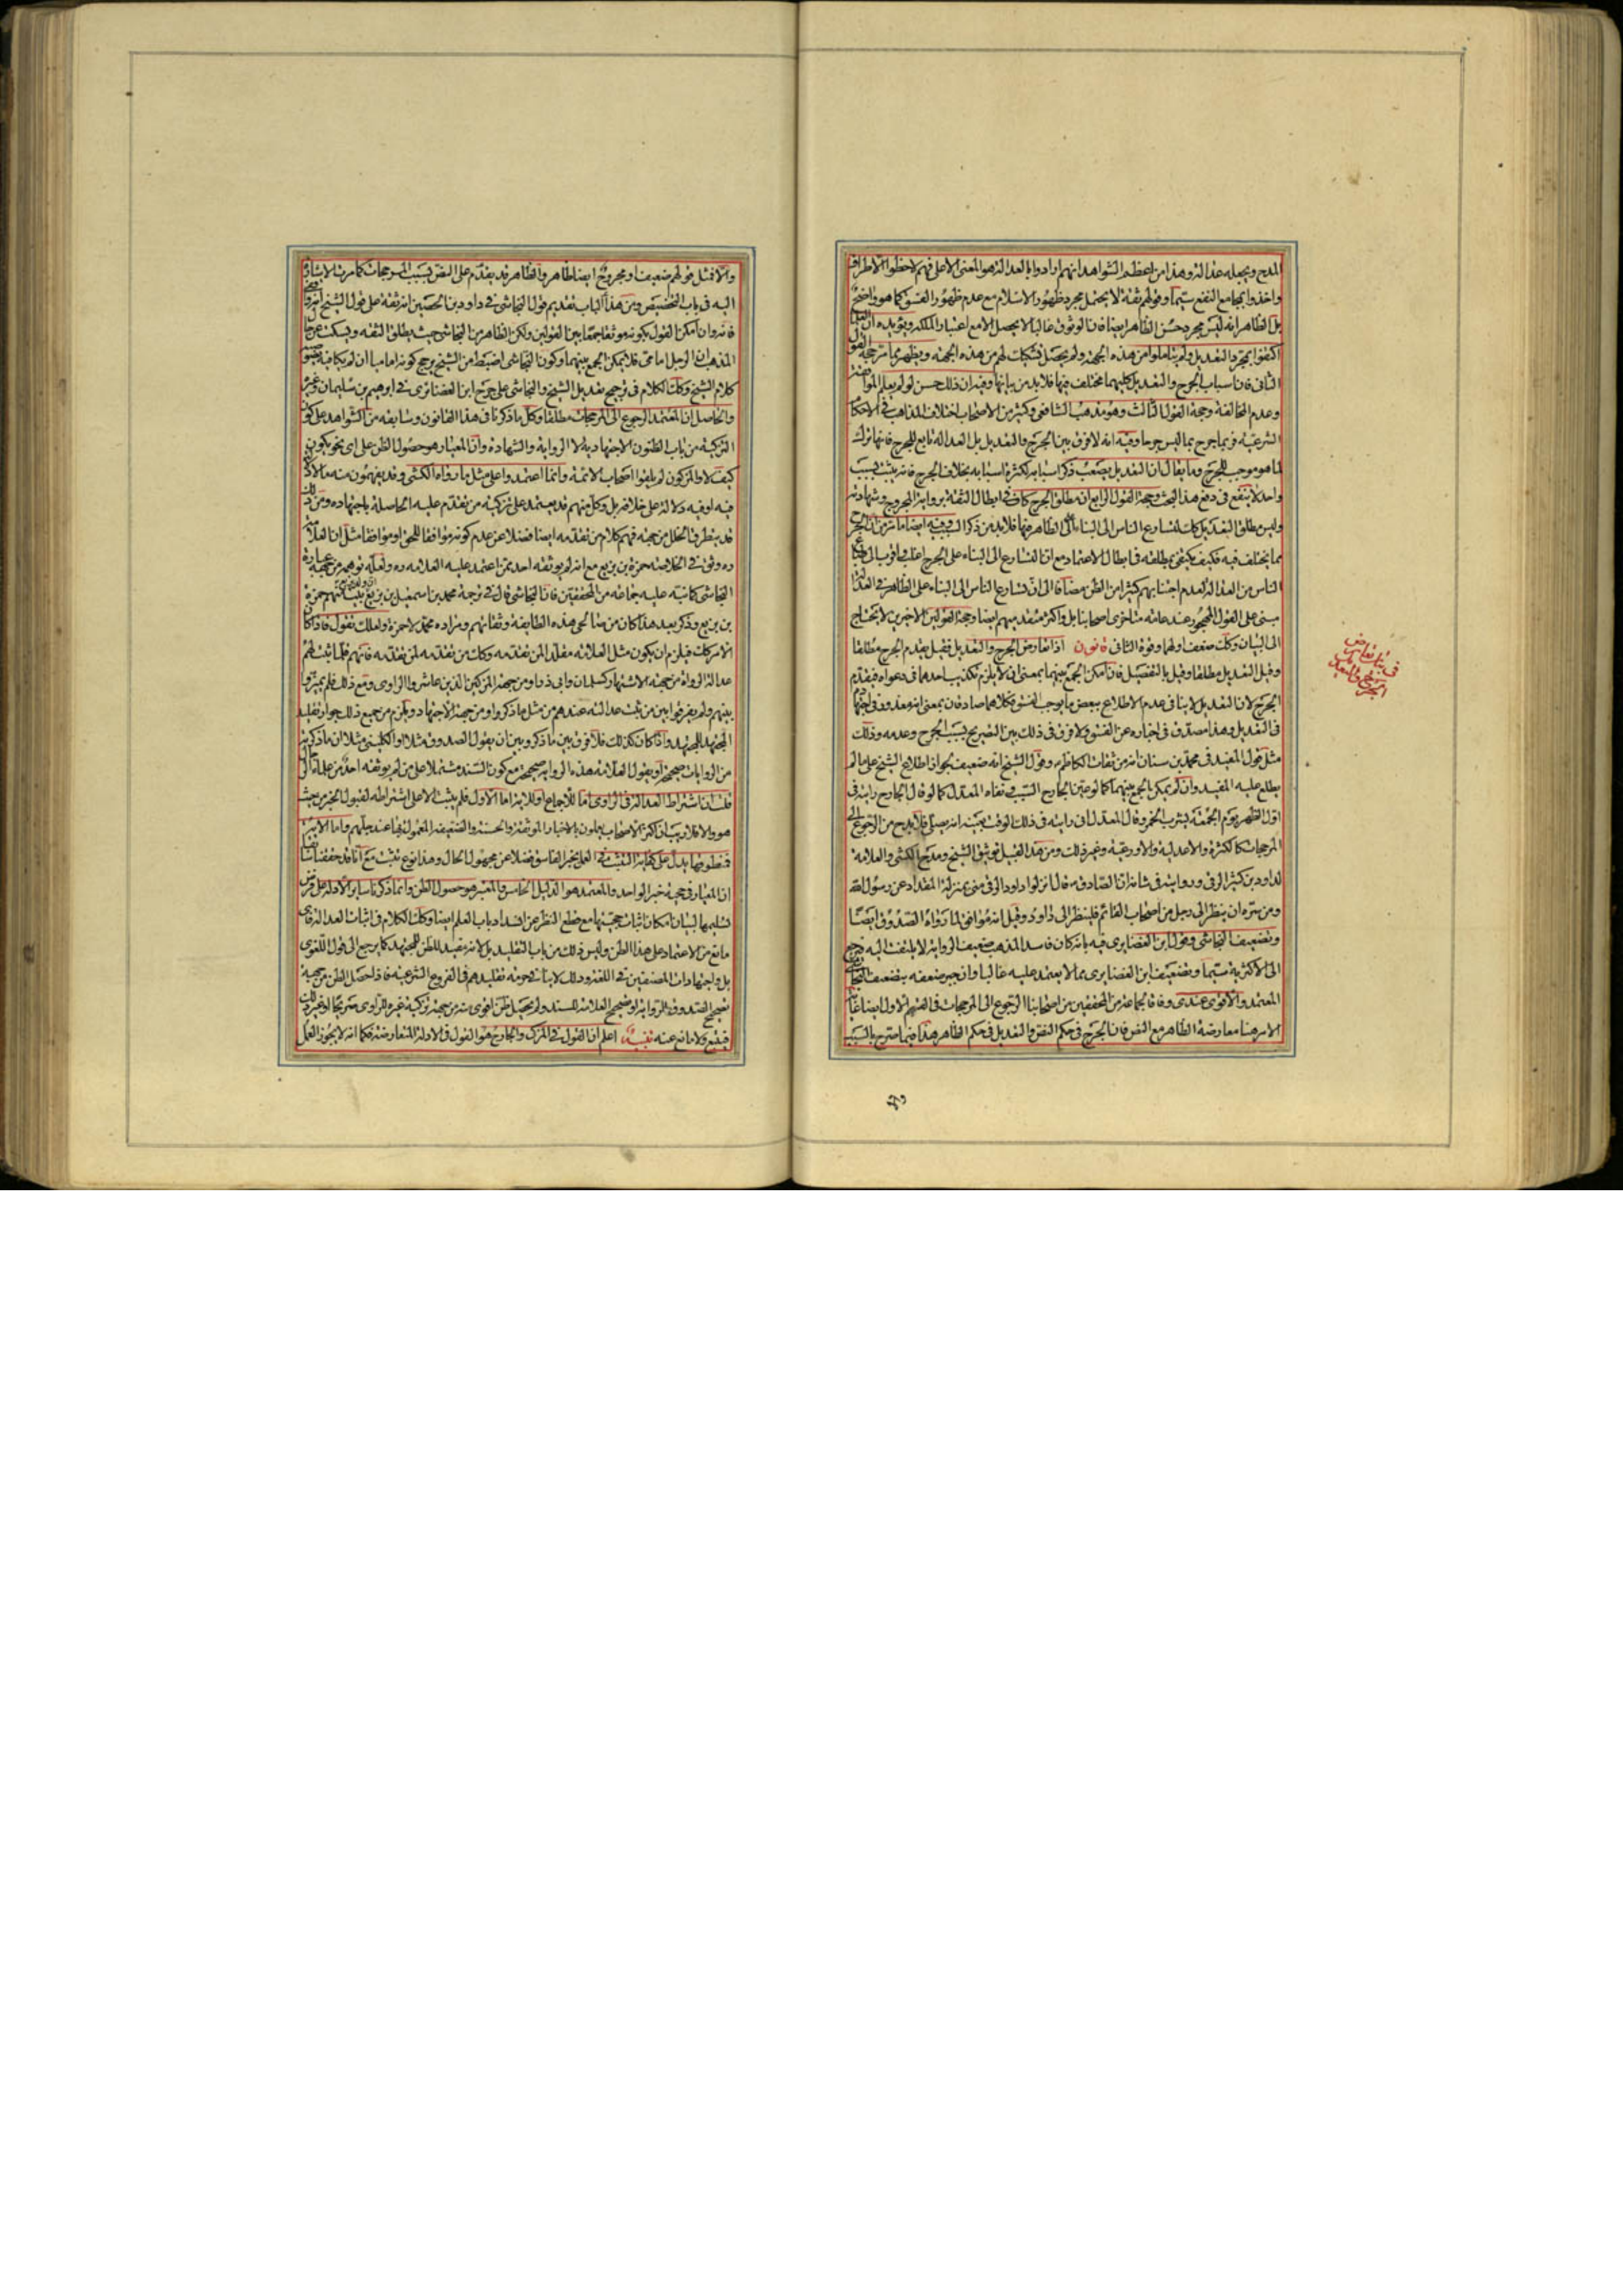 المدح ويجعله عدالة وهذا من اعظم الشواهد انهم ارادوا بالعدالة هو المعنى الاعلى فهم لاحظوا الاطراف
واخذوا بمجامع النفع سيما وقولهم ثقة لا يحتمل مجرد ظهور الاسلام مع عدم ظهور الفسق كما هو واضح
بل الظاهر انه ليس مجرد حسن الظاهر ايضا فان الوثوق غالبا لا يحصل الا مع اعتبار الملكة ويؤيده ان العلماء
اكتفوا بمجرد التعديل ولم يتاملوا من هذه الجهة ولم يحصل تشكيك لهم من هذه الجهة ويظهر مما مر حجة القول
الثانى فان اسباب الجرح والتعديل كليهما مختلف فيها فلا بد من بيانها وفيه ان ذلك حسن لو لم يعلم الموافقة
وعدم المخالفة وحجة القول الثالث وهو مذهب الشافعى وكثير من الاصحاب اختلاف المذاهب فى الاحكام
الشرعية فربما جرح بما ليس جرحا وفيه انه لا فرق بين الجرح والتعديل بل العدالة تابع للجرح فانها ترك
لما هو موجب للجرح وما يقال ان التعديل يصعب ذكر اسبابه لكثرة اسبابه بخلاف الجرح فانه يثبت بسبب
واحد لا ينفع فى دفع هذا البحث وحجة القول الرابع ان مطلق الجرح كاف فى ابطال الثقة برواية المجروح وشهادته
وليس مطلق التعديل كذلك لتسارع الناس الى البناء على الظاهر فيها فلا بد من ذكر السبب وفيه ايضا ما مر من ان الجرح
مما يختلف فيه فكيف يكتفى بمطلقه فى ابطال الاعتماد مع ان التسارع الى البناء على الجرح اغلب واقرب الى طباع
الناس من العدالة لعدم اجتنابهم كثيرا من الظن مضافا الى ان تسارع الناس الى البناء على الظاهر فى العدالة
مبنى على القول المهجور عند عامة متاخرى اصحابنا بل واكثر متقدميهم ايضا وحجة القولين الاخرين لا تحتاج
الى البيان وكذلك ضعف اولهما وقوة الثانى قانون اذا تعارض الجرح والتعديل فقيل يقدم الجرح مطلقا
وقيل التعديل مطلقا وقيل بالتفصيل فان امكن الجمع بينهما بمعنى ان لا يلزم تكذيب احدهما فى دعواه فيقدم
الجرح لان التعديل لا ينافى عدم الاطلاع ببعض ما يوجب الفسق فكلاهما صادقان بمعنى انه معذور فى اجتهاده
فى التعديل وهذا مصدق فى اخباره عن الفسق ولا فرق فى ذلك بين التصريح بسبب الجرح وعدمه وذلك
مثل قول المفيد فى محمد بن سنان انه من ثقات الكاظم وقول الشيخ انه ضعيف لجواز اطلاع الشيخ على ما لم
يطلع عليه المفيد وان لم يمكن الجمع بينهما كما لو عين الجارح السبب ونفاه المعدل كما لو قال الجارح رايته فى
اول الظهر يوم الجمعة يشرب الخمر وقال المعدل ان رايته فى ذلك الوقت بعينه انه يصلى فلا بد ح من الرجوع الى
المرجحات كالكثرة والاعدلية والاورعية وغير ذلك ومن هذا القبيل توثيق الشيخ ومدح الكشى والعلامة
لداود بن كثير الرقى وروايته فى شانه ان الصادق قال انزلوا داود الرقى منى بمنزلة المقداد عن رسول الله
ومن سره ان ينظر الى رجل من اصحاب القائم فلينظر الى داود وقيل انه موافق لما رواه الصدوق ايضا
وتضعيف النجاشى وقول ابن الغضايرى فيه بانه كان فاسد المذهب ضعيف الرواية لا يلتفت اليه فيرجح
الى الاكثرية سيما وتضعيف ابن الغضايرى مما لا يعتمد عليه غالبا وان جبر ضعفه بتضعيف النجاشى
المعتمد والاقوى عندى وفاقا لجماعة من المحققين من اصحابنا الرجوع الى المرجحات فى القسم الاول ايضا غاية
الامر هنا معارضة الظاهر مع النص فان الجرح فى حكم النص والتعديل فى حكم الظاهر هذا فيما صرح بالسبب
فى بيان تعارض
الجرح والتعديل
والا فمثل قولهم ضعيف او مجروح ايضا ظاهر والظاهر قد يقدم على النص بسبب المرجحات كما مرت الاشارة
اليه فى باب التخصيص ومن هذا الباب تقديم قول النجاشى فى داود بن الحصين انه ثقة على قول الشيخ انه واقفى
فانه وان امكن القول بكونه موثقا جمعا بين القولين ولكن الظاهر من النجاشى حيث يطلق الثقة ويسكت عن حال
المذهب ان الرجل امامى فلا يمكن الجمع بينهما وكون النجاشى اضبط من الشيخ يرجح كونه اماميا ان لم يكافئه نصوصية
كلام الشيخ وكذلك الكلام فى ترجيح تعديل الشيخ والنجاشى على جرح ابن الغضائرى فى ابراهيم بن سليمان وغيره
والحاصل ان المعتمد الرجوع الى المرجحات مطلقا وكل ما ذكرنا فى هذا القانون وسابقه من الشواهد على كون
التزكية من باب الظنون الاجتهادية لا الرواية والشهادة وان المعيار هو حصول الظن على اى نحو يكون
كيف لا والمزكون لم يلقوا اصحاب الائمة وانما اعتمدوا على مثل ما رواه الكشى وقد يفهمون منه ما لا دلالة
فيه او فيه دلالة على خلافه بل وكل منهم قد يعتمد على تزكية من تقدم عليه الحاصلة باجتهاده ومن ذلك
قد يتطرق الخلل من جهة فهم كلام من تقدمه ايضا فضلا عن عدم كونه موافقا للحق او موافقا مثل ان العلامة
ره وثق فى الخلاصة حمزة بن بزيع مع انه لم يوثقه احد ممن اعتمد عليه العلامة ره ولعله توهمه من جهة عبارة
النجاشى كما نبه عليه جماعة من المحققين فان النجاشى قال فى ترجمة محمد بن اسمعيل بن بزيع منهم حمزة
بن بزيع وذكر بعد هذا كان من صالحى هذه الطايفة وثقاتهم ومراده محمد لا حمزة ولعلك تقول فاذا كان
الامر كذلك فيلزم ان يكون مثل العلامة مقلدا لمن تقدمه وكذلك من تقدمه لمن تقدمه فانهم قلما يثبت لهم
عدالة الرواة من جهة الاشتهار كسلمان وابى ذر او من جهة المزكين الذين عاشروا الراوى ومع ذلك فلم يميزوا
بينهم ولم يفرقوا بين من يثبت عدالته عندهم من مثل ما ذكروا ومن جهة الاجتهاد ويلزم من جميع ذلك جواز تقليد
المجتهد للمجتهد واذا كان كذلك فلا فرق بين ما ذكر وبين ان يقول الصدوق مثلا او الكلينى مثلا ان ما ذكرته
من الروايات صحيحة او يقول العلامة هذه الرواية صحيحة مع كون السند مشتملا على من لم يوثقه احد من علماء الرجال
قلت ان اشتراط العدالة فى الراوى اما للاجماع او للاية اما الاول فلم يثبت الا على اشتراطه لقبول الخبر من حيث
هو والا فلا ريب ان اكثر الاصحاب يعملون بالاخبار الموثقة والحسنة والضعيفة المعمول بها عند جلهم واما الاية
فمنطوقها يدل على كفاية التثبت فى العمل بخبر الفاسق فضلا عن مجهول الحال وهذا نوع تثبت مع انا قد حققنا سابقا
ان المعيار فى حجية خبر الواحد والمعتمد هو الدليل الخامس والمعتبر هو حصول الظن وانما ذكرنا ساير الادلة على فرض
تسليمها لبيان امكان اثبات حجيتها مع قطع النظر عن انسداد باب العلم ايضا وكذلك الكلام فى اثبات العدالة فاى
مانع من الاعتماد على هذا الظن وليس ذلك من باب التقليد بل لانه مفيد للظن للمجتهد كما يرجع الى قول اللغوى
بل واجتهادات المصنفين فى اللغة وذلك لا ينافى حرمة تقليدهم فى الفروع الشرعية فاذا حصل الظن من جهة
تصحيح الصدوق للرواية او تصحيح العلامة للسند ولم يحصل ظن اقوى منه من جهة تزكية غيره للراوى صريحا او غير ذلك
فيتبع ولا مانع عنه تنبيه اعلم ان القول فى المزكى والجارح هو القول فى الادلة المتعارضة فكما انه لا يجوز العمل